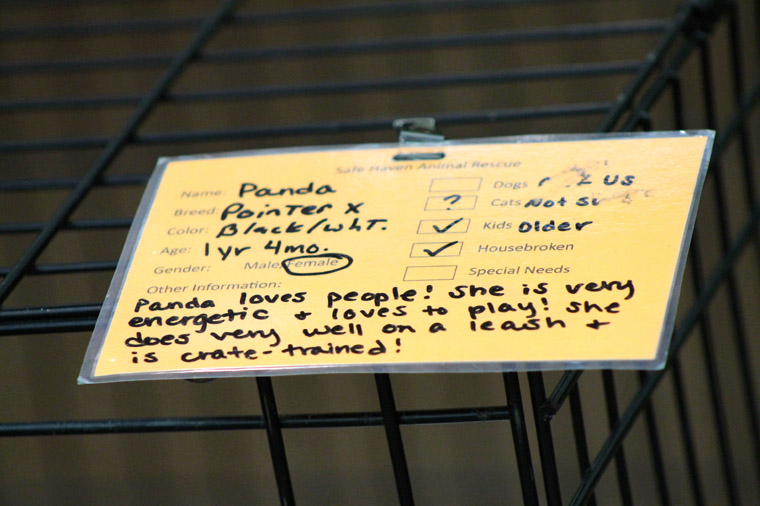 Safe Haven Animal Rescue
Name: Panda
Breed: Pointer X
Color: Black/wht.
Age: 1yr 4mo.
Gender: Male/Female
Dogs US
? Cats Not
✓ Kids Older
✓ Housebroken
Special Needs
Other Information:
Panda loves people! She is very
energetic + loves to play! She
does very well on a leash +
is crate-trained!